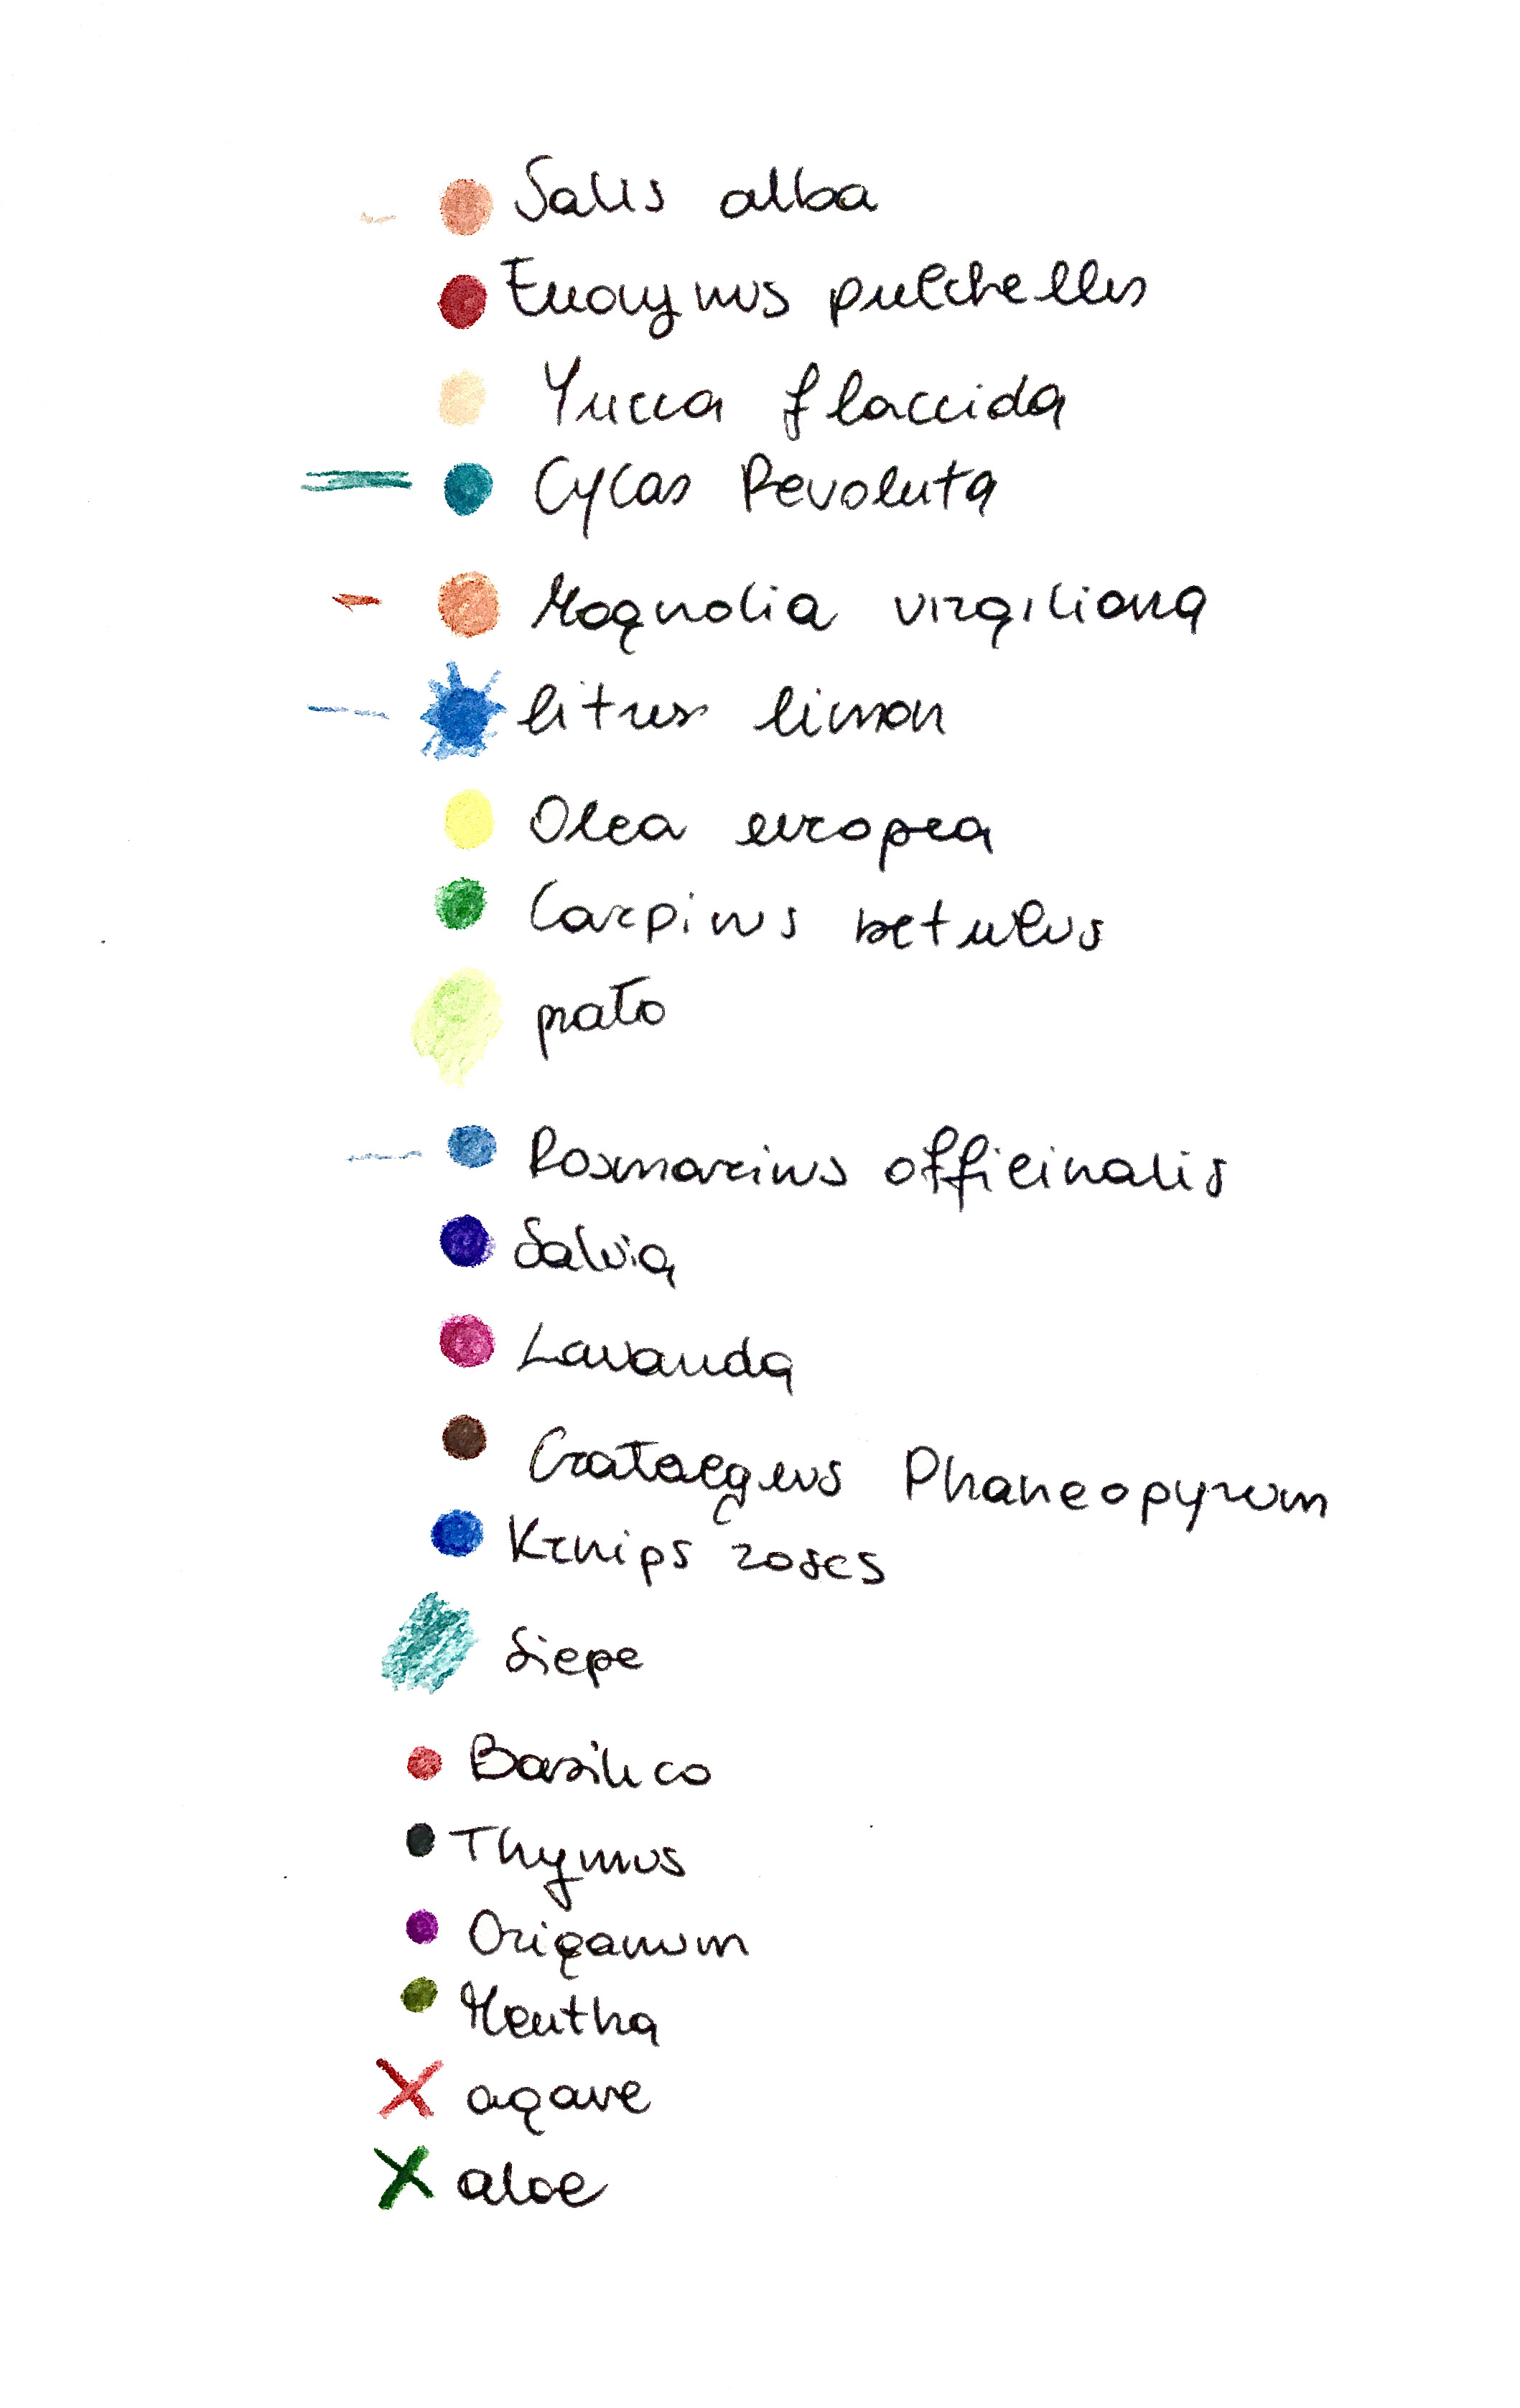 Salis alba
Euonymus pulchellus
Yucca flaccida
Cycas Revoluta
Magnolia virgiliana
Citrus limon
Olea europea
Carpinus betulus
prato
Rosmarinus officinalis
Salvia
Lavanda
Crataegus Phaneopyrum
roses
Siepe
Basilico
Thymus
Origanum
Mentha
agave
aloe